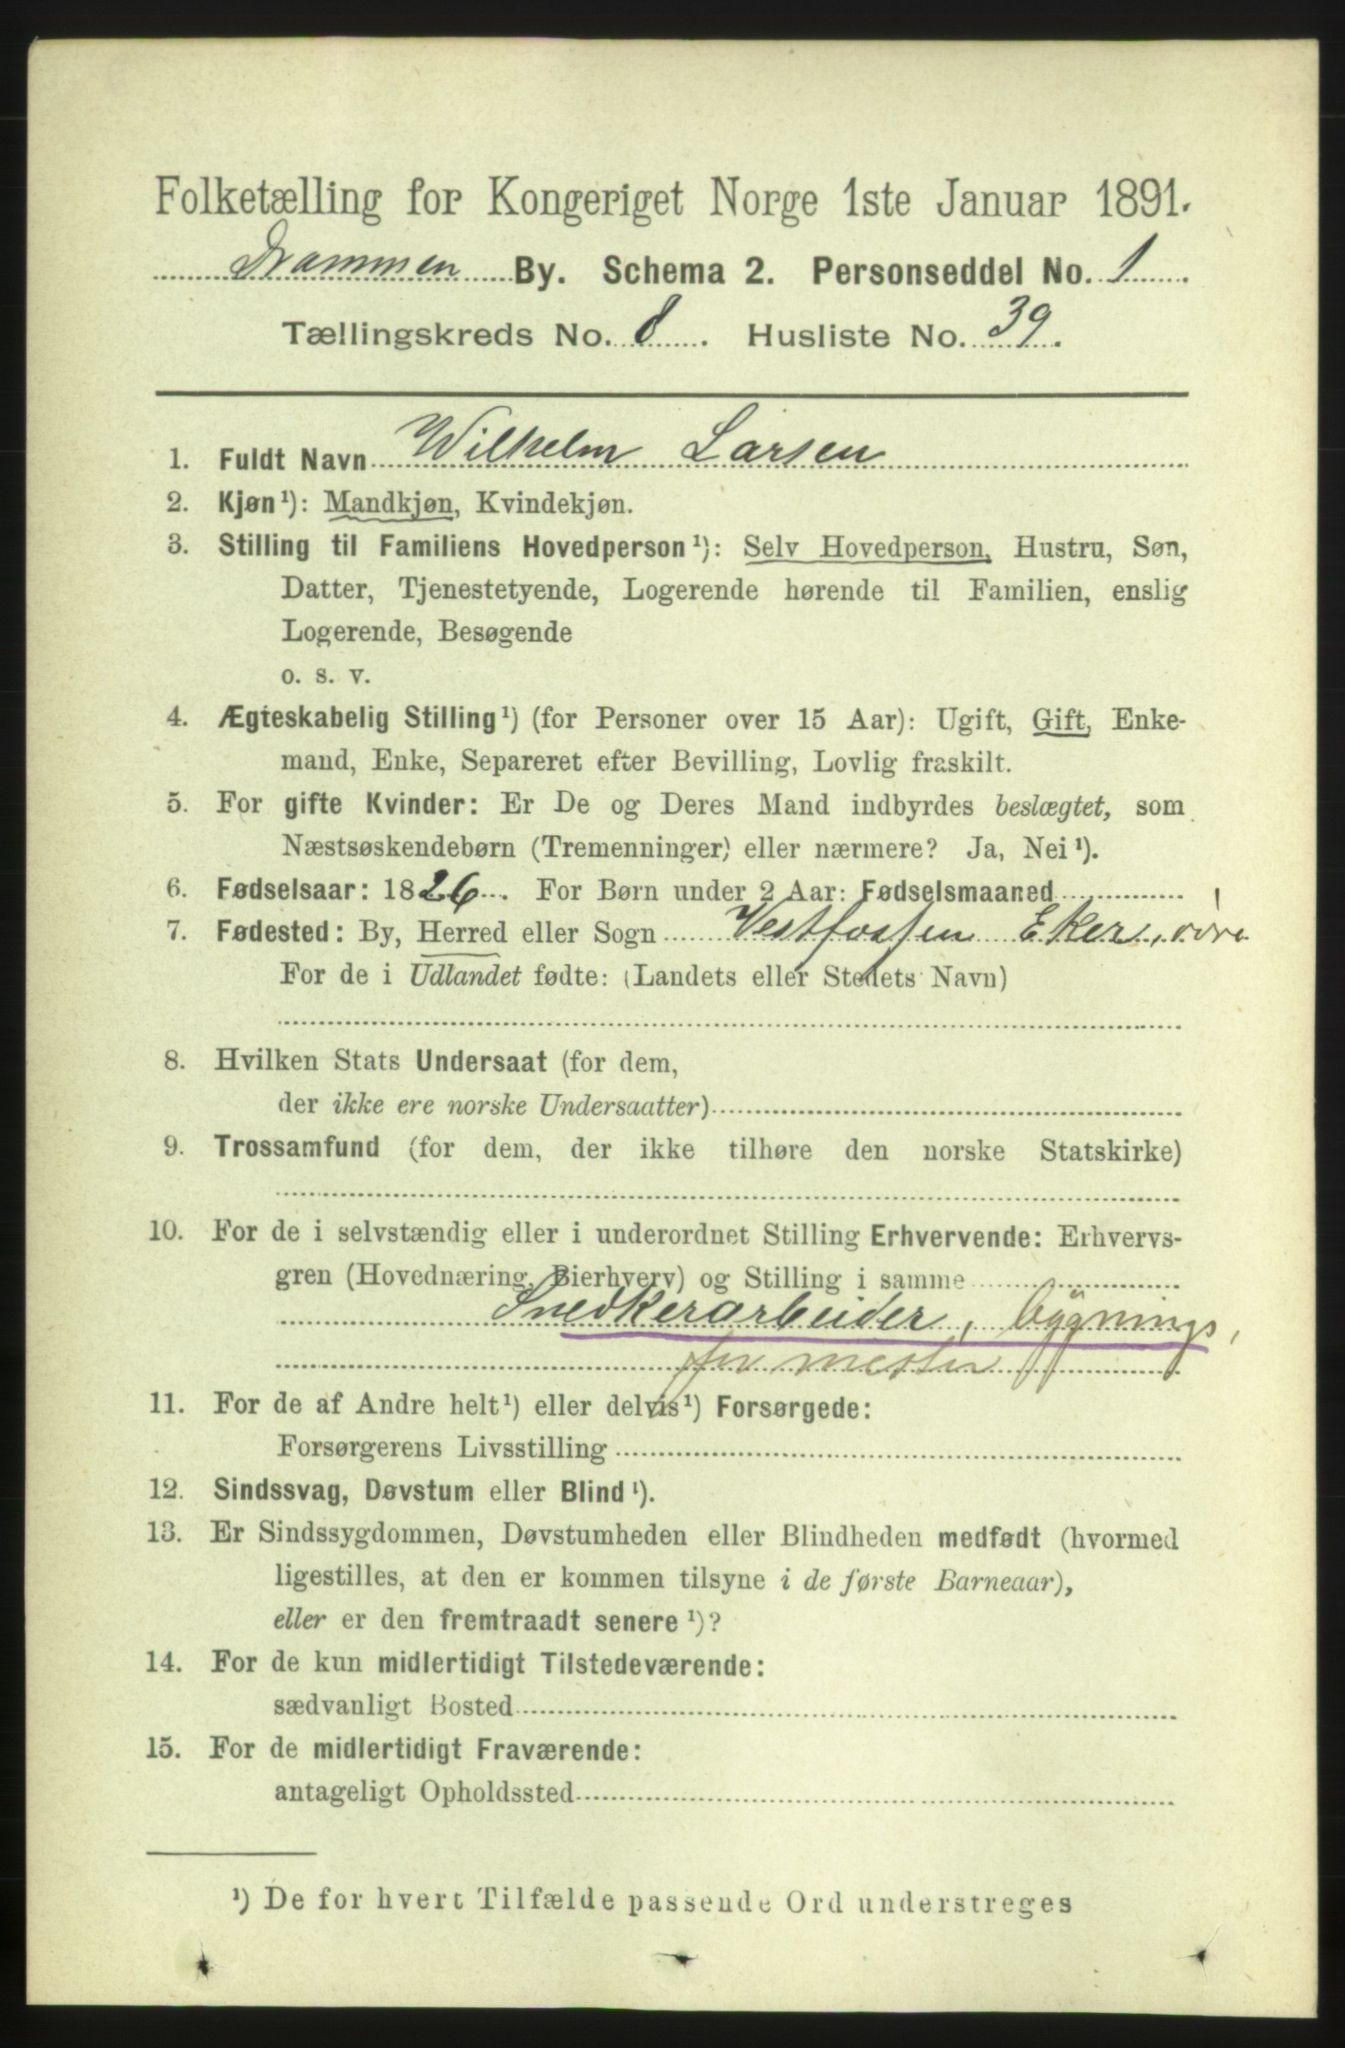 Folketælling for Kongeriget Norge 1ste Januar 1891.
Drammen By. Schema 2. Personseddel No. 1.
Tællingskreds No. 8. Husliste No. 39.
1. Fuldt Navn Wilhelm Larsen
2. Kjøn¹): Mandkjøn, Kvindekjøn.
3. Stilling til Familiens Hovedperson¹): Selv Hovedperson, Hustru, Søn,
Datter, Tjenestetyende, Logerende hørende til Familien, enslig
Logerende, Besøgende
o. s. v.
4. Ægteskabelig Stilling¹) (for Personer over 15 Aar): Ugift, Gift, Enke-
mand, Enke, Separeret efter Bevilling, Lovlig fraskilt.
5. For gifte Kvinder: Er De og Deres Mand indbyrdes beslægtet, som
Næstsøskendebørn (Tremenninger) eller nærmere? Ja, Nei¹).
6. Fødselsaar: 1826. For Børn under 2 Aar: Fødselsmaaned
7. Fødested: By, Herred eller Sogn Vestfossen Eker, øvre
For de i Udlandet fødte: (Landets eller Stedets Navn)
8. Hvilken Stats Undersaat (for dem,
der ikke ere norske Undersaatter)
9. Trossamfund (for dem, der ikke tilhøre den norske Statskirke)
10. For de i selvstændig eller i underordnet Stilling Erhvervende: Erhvervs-
gren (Hovednæring, Bierhverv) og Stilling i samme
Snedkerarbeider, bygnings,
for mester
11. For de af Andre helt¹) eller delvis¹) Forsørgede:
Forsørgerens Livsstilling
12. Sindssvag, Døvstum eller Blind¹).
13. Er Sindssygdommen, Døvstumheden eller Blindheden medfødt (hvormed
ligestilles, at den er kommen tilsyne i de første Barneaar),
eller er den fremtraadt senere¹)?
14. For de kun midlertidigt Tilstedeværende:
sædvanligt Bosted
15. For de midlertidigt Fraværende:
antageligt Opholdssted
¹) De for hvert Tilfælde passende Ord understreges